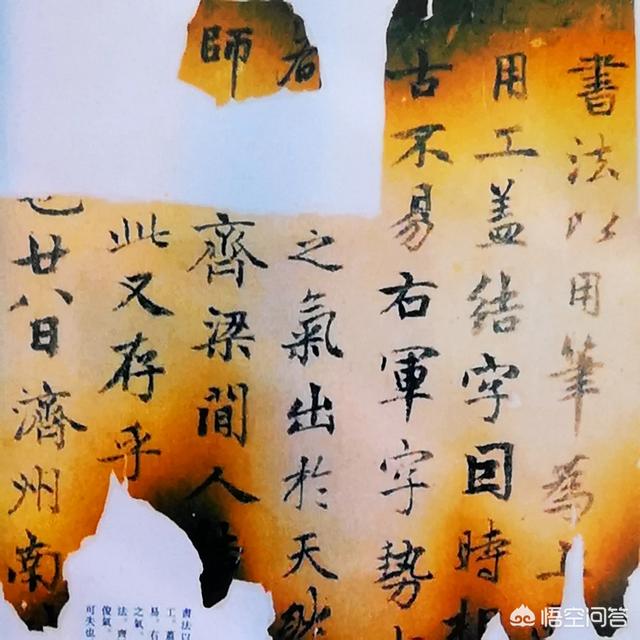 書法以用筆為上
用工盖結字因時相
古不易右軍字勢
者之氣出於天然
師齊梁間人
此又存乎
廿八日濟州南
書法以
工。蓋
易。右
之氣。
法。齊
俊氣。
可失也
悟空问答